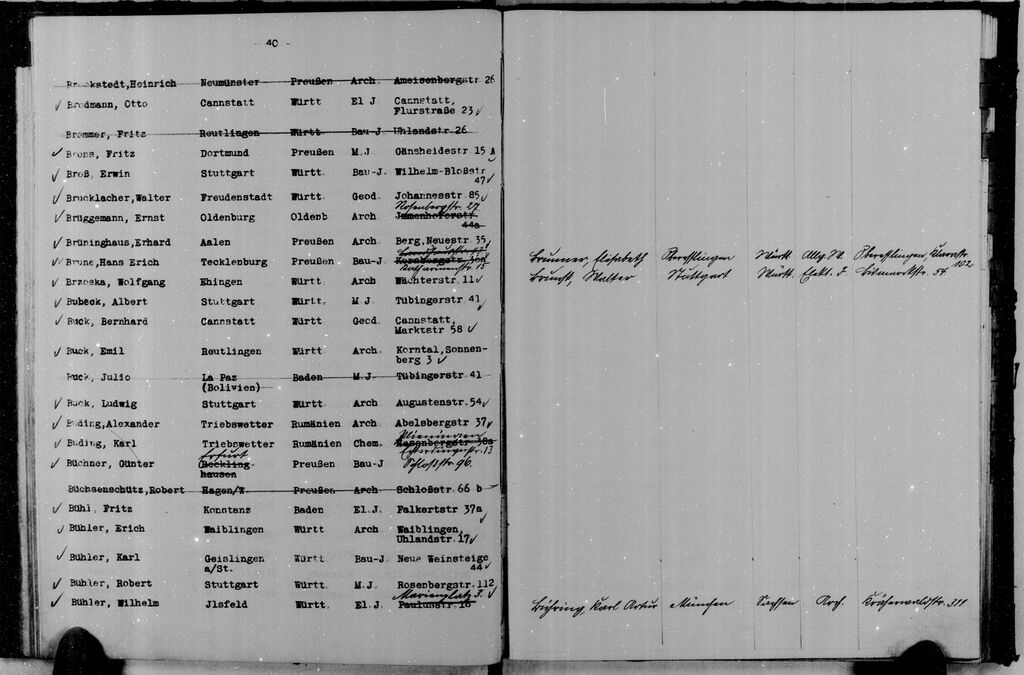 - 40 -
Brockstedt,Heinrich Neumünster Preußen Arch. Ameisenbergstr 26
✓ Brodmann, Otto Cannstatt Württ El J Cannstatt,
Flurstraße 23 ✓
Brommer, Fritz Reutlingen Württ Bau-J Uhlandstr 26
✓ Brons, Fritz Dortmund Preußen M.J Gänsheidestr 15 A
✓ Broß, Erwin Stuttgart Württ. Bau-J. Wilhelm-Bloßstr
47 ✓
✓ Brucklacher,Walter Freudenstadt Württ. Geod. Johannesstr 85 ✓
Rosenbergstr. 27
✓ Brüggemann, Ernst Oldenburg Oldenb Arch Immenhoferstr
44a
✓ Brüninghaus,Erhard Aalen Preußen Arch Berg,Neuestr 35 ✓
✓ Brune,Hans Erich Tecklenburg Preußen Bau-J
Katharinenstr 15
✓ Brzoska, Wolfgang Ehingen Württ Arch Wächterstr 11 ✓
✓ Bubeck, Albert Stuttgart Württ. M J Tübingerstr 41 ✓
✓ Buck, Bernhard Cannstatt Württ Geod Cannstatt,
Marktstr 58 ✓
✓ Buck, Emil Reutlingen Württ Arch. Korntal,Sonnen-
berg 3 ✓
Buck, Julio La Paz Baden M.J. Tübingerstr 41
(Bolivien)
✓ Buck, Ludwig Stuttgart Württ. Arch Augustenstr 54 ✓
✓ Buding,Alexander Triebswetter Rumänien Arch Abelsbergstr 37 ✓
Plieningen
✓ Buding, Karl Triebswetter Rumänien Chem. Rosenbergstr 38a
Erfurt Echterdingerstr. 13
✓ Büchner, Günter Reckling- Preußen Bau-J Schloßstr. 96.
hausen
Büchsenschütz,Robert Hagen/W. Preußen Arch Schloßstr 66 b
✓ Bühl, Fritz Konstanz Baden El.J. Falkertstr 37a ✓
✓ Bühler, Erich Waiblingen Württ Arch Waiblingen,
Uhlandstr.17 ✓
✓ Bühler, Karl Geislingen Württ Bau-J. Neue Weinsteige
a/St. 44 ✓
✓ Bühler, Robert Stuttgart Württ. M.J. Rosenbergstr.112
Marienplatz 3. ✓
✓ Bühler, Wilhelm Jlsfeld Württ. El.J Paulusstr 16
Brunner, Elisabeth Oberesslingen Württ. Allg. W. Oberesslingen,
102
Brunst, Walter Stuttgart Württ. Elekt. J. Bismarckstr. 54.
Bühring, Karl Artur München Sachsen Arch. Kräherwaldstr. 311